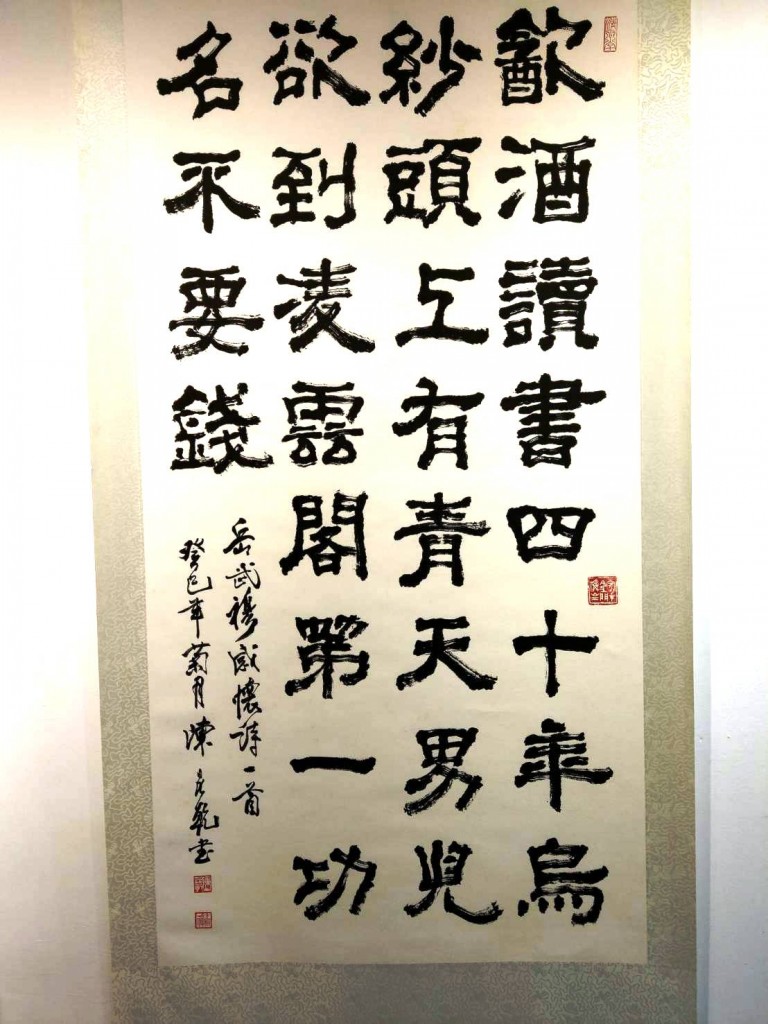 飲酒讀書四十年烏
紗頭上有青天男兒
欲到凌雲閣第一功
名不要錢
岳武穆感懷詩一首
癸巳年菊月陳良乾書